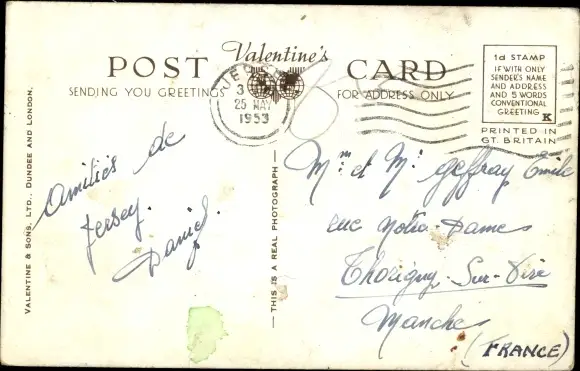 Valentine's
POST CARD
SENDING YOU GREETINGS
FOR ADDRESS ONLY
JERSEY
3
25 MAY
1953
1d STAMP
IF WITH ONLY
SENDER'S NAME
AND ADDRESS
AND 5 WORDS
CONVENTIONAL
GREETING
K
PRINTED IN
GT. BRITAIN
VALENTINE & SONS, LTD., DUNDEE AND LONDON.
THIS IS A REAL PHOTOGRAPH
Amitiés de
Jersey.
Daniel.
Mme et Mr Geffray Emile
rue Notre-Dames
Thorigny-Sur-Vire
Manche
(FRANCE)